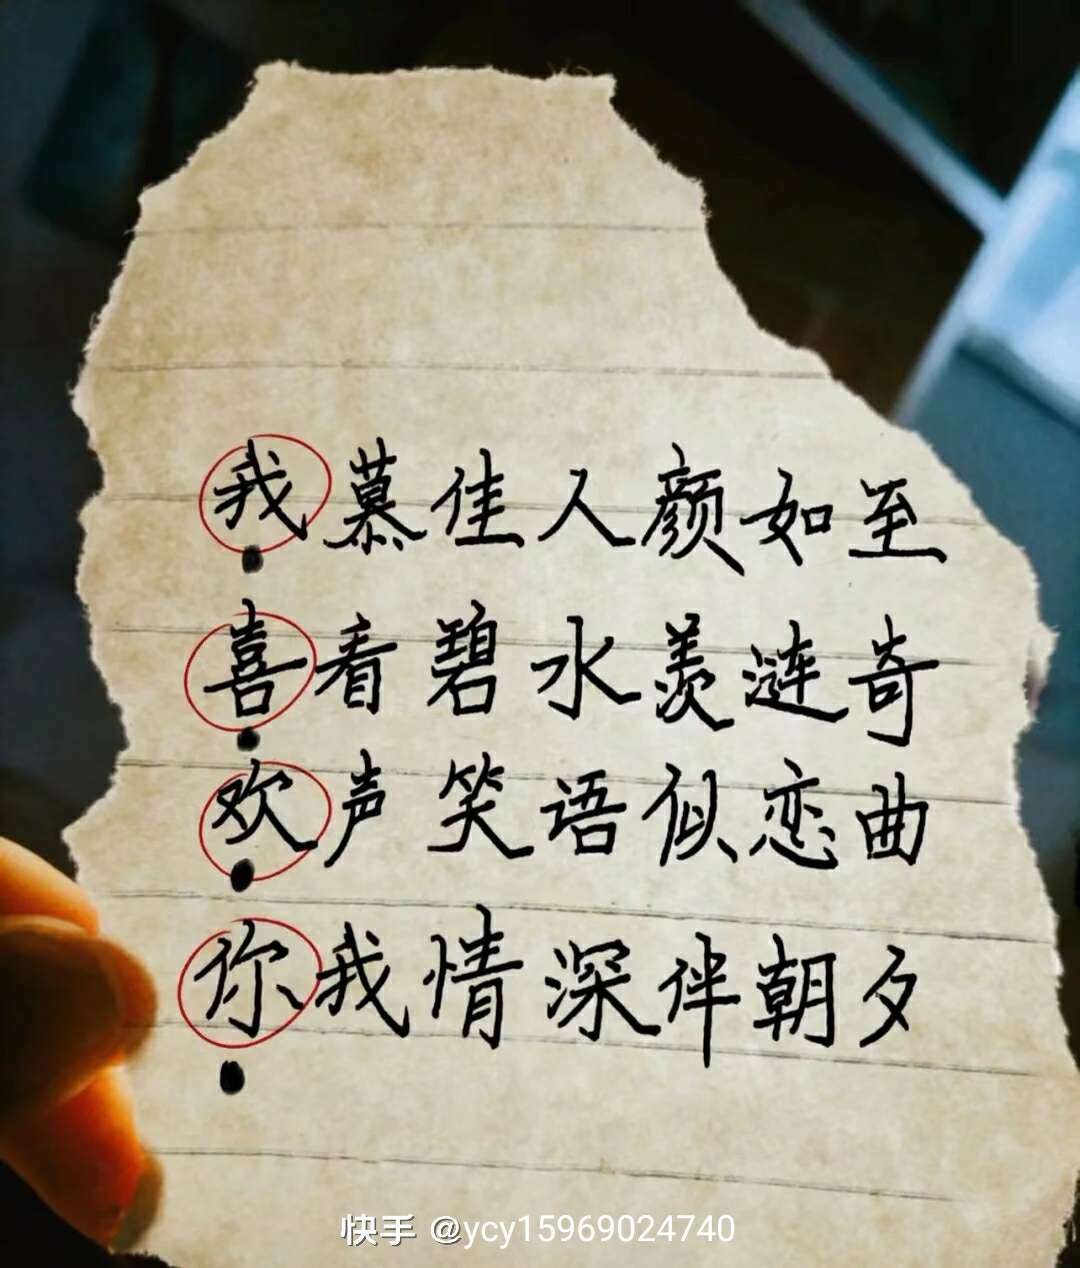 我慕佳人颜如至
喜看碧水羡涟奇
欢声笑语似恋曲
你我情深伴朝夕
快手 @ycy15969024740